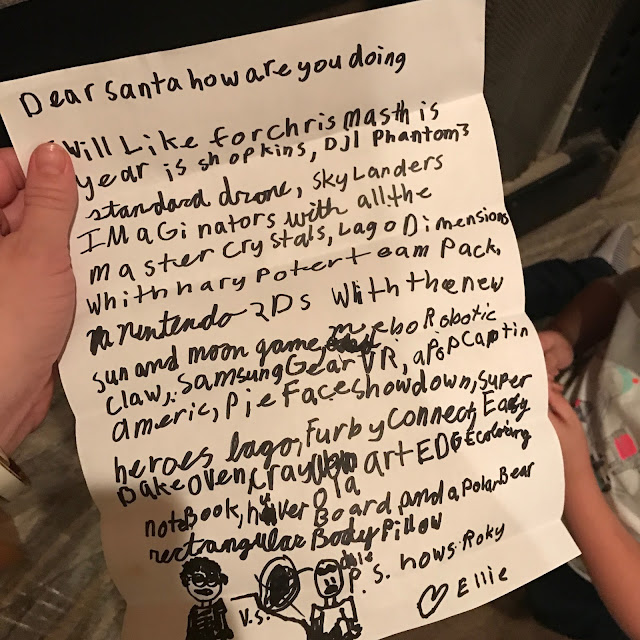 Dear santa how are you doing
I Will Like for chrismas this
year is shopkins, DJI Phantom3
standard drone, SkyLanders
IMaGinators with all the
master crystals, Lago Dimensions
whith hary Poter team Pack,
nintendo 2Ds whith the new
sun and moon game, mebo Robotic
claw, SamsungGear VR, a PoP Captin
americ, Pie Face showdown, super
heroes lago, Furby Connect, Easy
Bake oven, crayola art EDGE coloring
noteBook, hover Board and a Polar Bear
rectrangular Body Pillow
P.S. hows Roky
V.S.
♡ Ellie